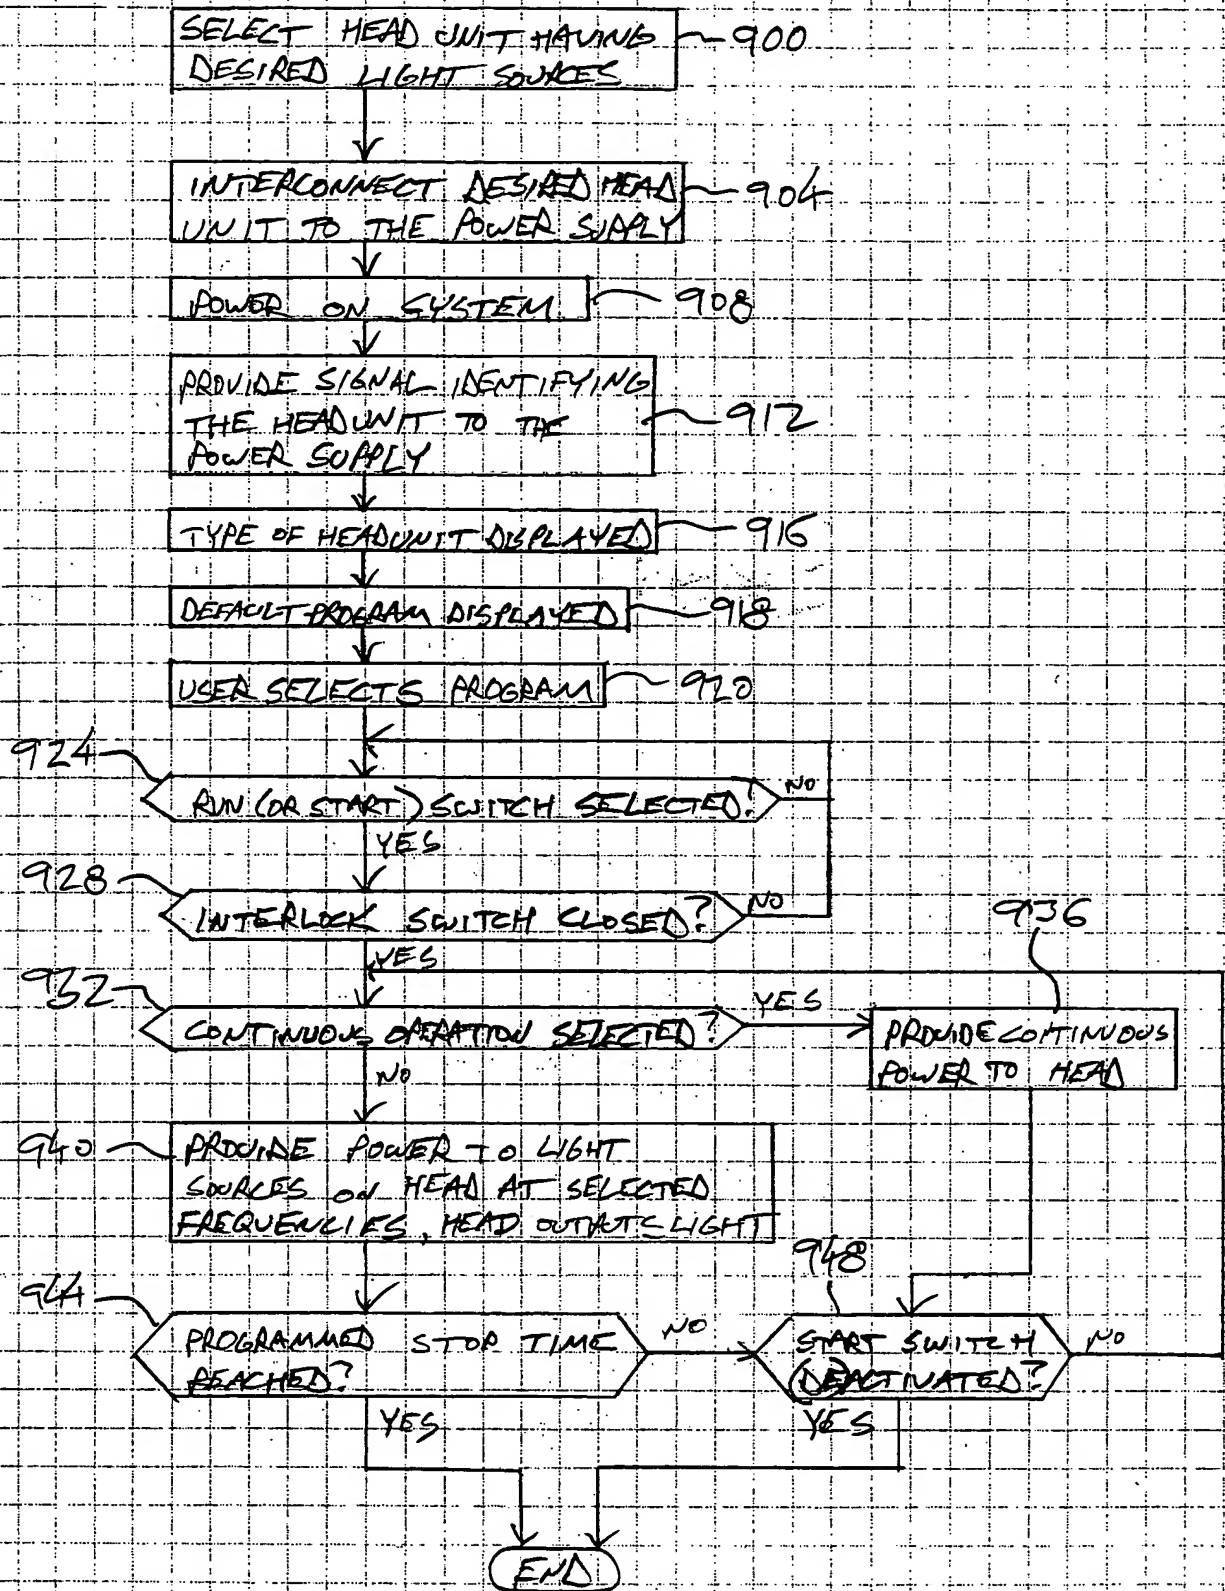 SELECT HEAD UNIT HAVING
DESIRED LIGHT SOURCES
900
INTERCONNECT DESIRED HEAD
UNIT TO THE POWER SUPPLY
904
POWER ON SYSTEM
908
PROVIDE SIGNAL IDENTIFYING
THE HEADUNIT TO THE
POWER SUPPLY
912
TYPE OF HEADUNIT DISPLAYED
916
DEFAULT PROGRAM DISPLAYED
918
USER SELECTS PROGRAM
920
924
RUN (OR START) SWITCH SELECTED?
NO
YES
928
INTERLOCK SWITCH CLOSED?
NO
YES
932
CONTINUOUS OPERATION SELECTED?
YES
936
PROVIDE CONTINUOUS
POWER TO HEAD
NO
940
PROVIDE POWER TO LIGHT
SOURCES ON HEAD AT SELECTED
FREQUENCIES, HEAD OUTPUTS LIGHT
944
PROGRAMMED STOP TIME
REACHED?
NO
948
START SWITCH
(DE)ACTIVATED?
NO
YES
YES
END